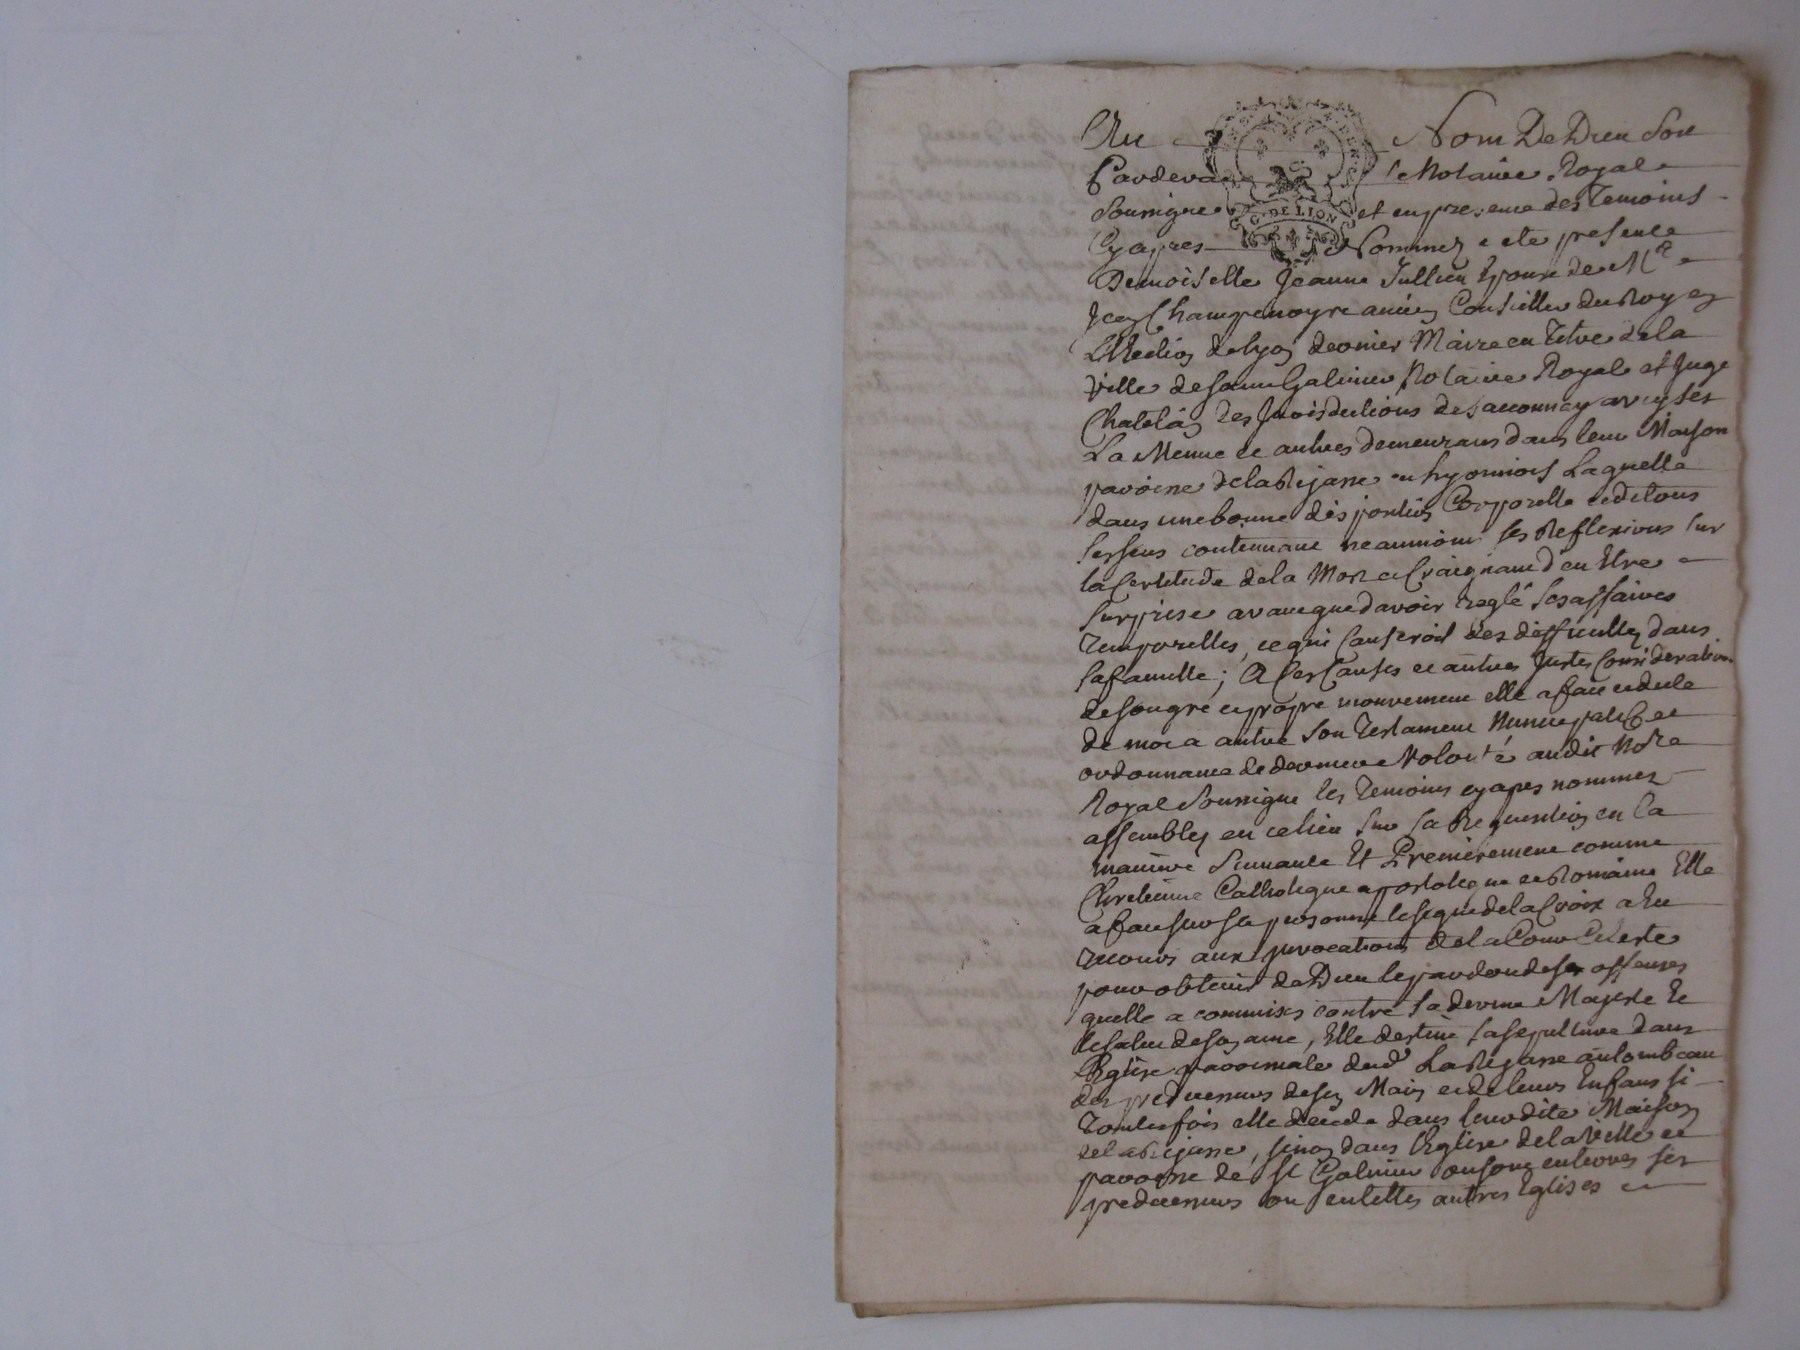 Au Nom De Dieu Soit
Pardeva le Notaire Royale
Soussigne et en presence des Temoins
Cyapres Nommez e ete presente
Demoiselle Jeanne Jullien Epouse de Mre
Jean Champenoyre ancien Conseiller du Roy en
L'Election de Lyon dernier Maire en Titre de la
Ville de Saint Galmier Notaire Royale et Juge
Chatelain des Jurisdictions de
La Menue et autres demeurans dans leur Maison
paroisse de la Rejasse en Lyonnois Laquelle
dans une bonne disposition Corporelle et de tous
ses sens contenuant neanmoins ses Reflexions sur
la Certitude de la Mort et Craignant d'en Etre
Surprise avant que d'avoir reglé ses affaires
Temporelles, ce qui Causeroit des difficultez dans
sa famille; A Ces Causes et autres Justes Considerations
de son gré et propre mouvement elle a fait et dicté
de mot a autre son Testament Nuncupatif et
ordonnance de derniere Volonté audit Nore
Royal Soussigne les Temoins cyapres nommez
assemblez en ce lieu sur sa Requisition en la
maniere Suivante Et Premierement comme
Chretienne Catholique apostolique et Romaine Elle
a fait sur sa personne le signe de la Croix a Eu
recours aux Invocations de la Cour Celeste
pour obtenir de Dieu le pardon de ses offenses
quelle a commises contre sa devine Majesté et
le salut de son ame, Elle destine sa sepulture dans
L'Eglise parroissiale dud La Rejasse au tombeau
des predecesseurs de son Mary et de leurs Enfans si
Toutes fois elle decede dans leurdite Maison
de la Rejasse, sinon dans l'Eglise de la Ville et
paroisse de St Galmier ou sont enterres ses
predecesseurs ou en telles autres Eglises
G. DE LION